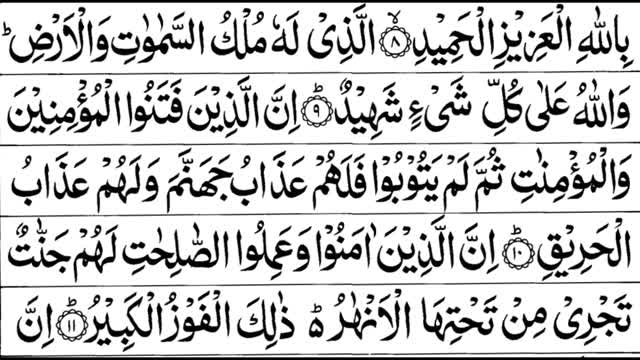 بِاللّٰهِ الْعَزِيْزِ الْحَمِيْدِ ۙ﴿۸﴾ الَّذِىْ لَهٗ مُلْكُ السَّمٰوٰتِ وَالْاَرْضِ ؕ
وَاللّٰهُ عَلٰى كُلِّ شَىْءٍ شَهِيْدٌ ؕ﴿۹﴾ اِنَّ الَّذِيْنَ فَتَنُوا الْمُؤْمِنِيْنَ
وَالْمُؤْمِنٰتِ ثُمَّ لَمْ يَتُوْبُوْا فَلَهُمْ عَذَابُ جَهَنَّمَ وَلَهُمْ عَذَابُ
الْحَرِيْقِ ؕ﴿۱۰﴾ اِنَّ الَّذِيْنَ اٰمَنُوْا وَعَمِلُوا الصّٰلِحٰتِ لَهُمْ جَنّٰتٌ
تَجْرِىْ مِنْ تَحْتِهَا الْاَنْهٰرُ ؕ۵ ذٰلِكَ الْفَوْزُ الْكَبِيْرُ ؕ﴿۱۱﴾ اِنَّ